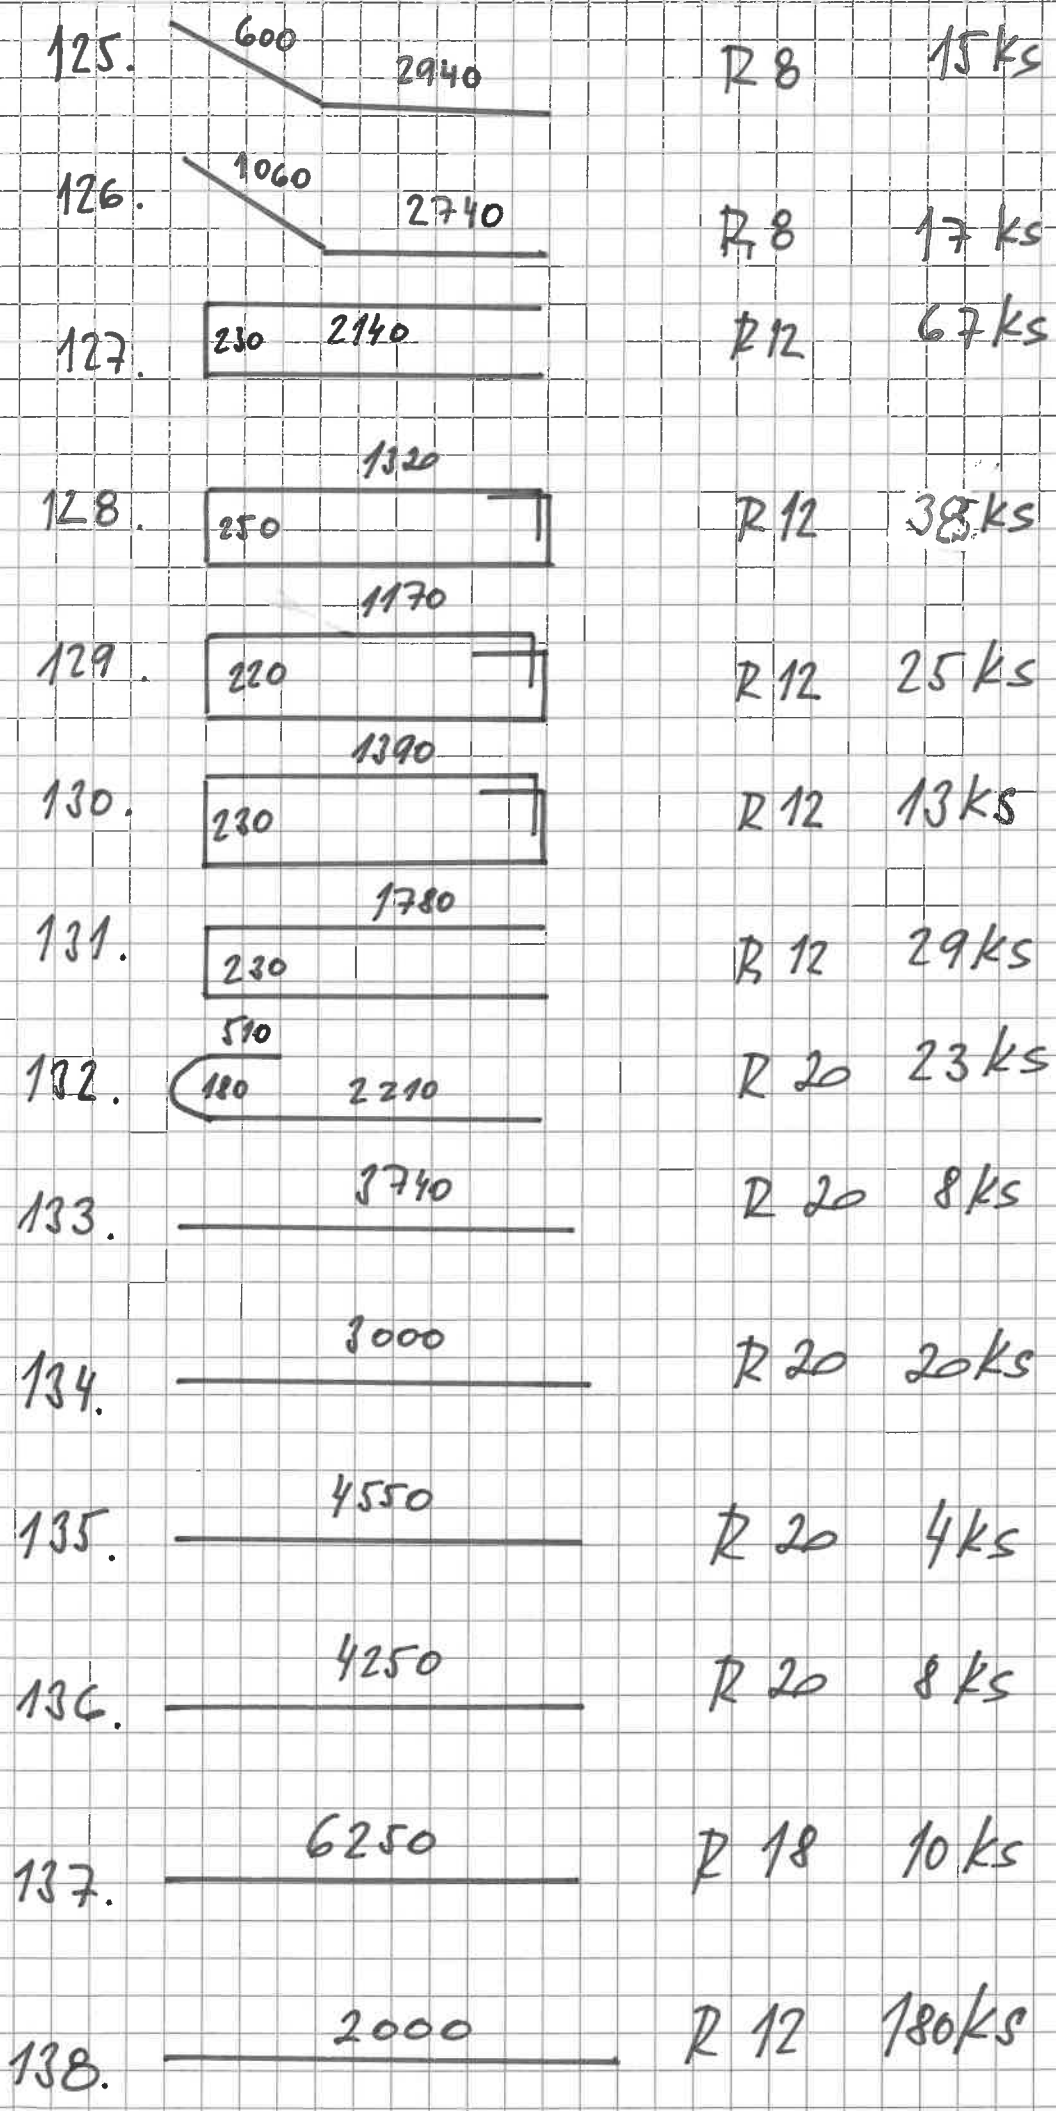 125. 600 2940 R 8 15 ks
126. 1060 2740 R 8 17 ks
127. 230 2140 R 12 67 ks
128. 1320 250 R 12 ks
129. 1170 220 R 12 25 ks
130. 1390 230 R 12 13 ks
131. 1780 230 R 12 29 ks
132. 510 180 2210 R 20 23 ks
133. 3740 R 20 8 ks
134. 3000 R 20 20 ks
135. 4550 R 20 4 ks
136. 4250 R 20 8 ks
137. 6250 R 18 10 ks
138. 2000 R 12 180 ks